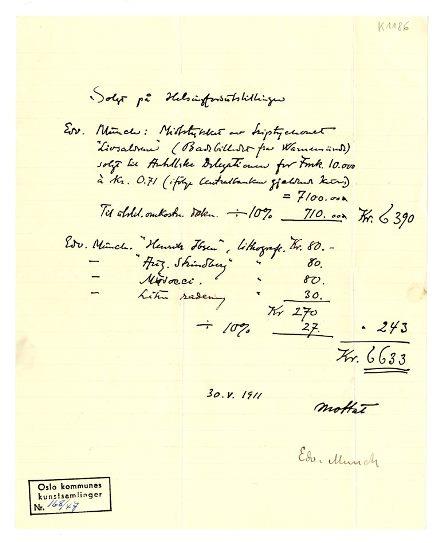 K1186
Solgt på Helsingforsutstillingen
Edv. Munch: Midtstykket av Triptychonet
"Livsalderne" (Badebilledet fra Warnemünde)
solgt til Antellske Delegationen for Fmk 10.000
à Kr. 0.71 (ifølge Centralbankens gjældende kurs)
= 7100.00
Til utstil. omkostn. ÷ 10% 710.00 Kr. 6390
Edv. Munch. "Henrik Ibsen", lithografi. Kr. 80.-
— "Aug. Strindberg" " 80.
— Mudocci. " 80.
— Liten radering " 30.
Kr 270
÷ 10% 27. " 243
Kr. 6633
30. V. 1911
Mottat
Edv. Munch
Oslo kommunes
kunstsamlinger
Nr. 168/47